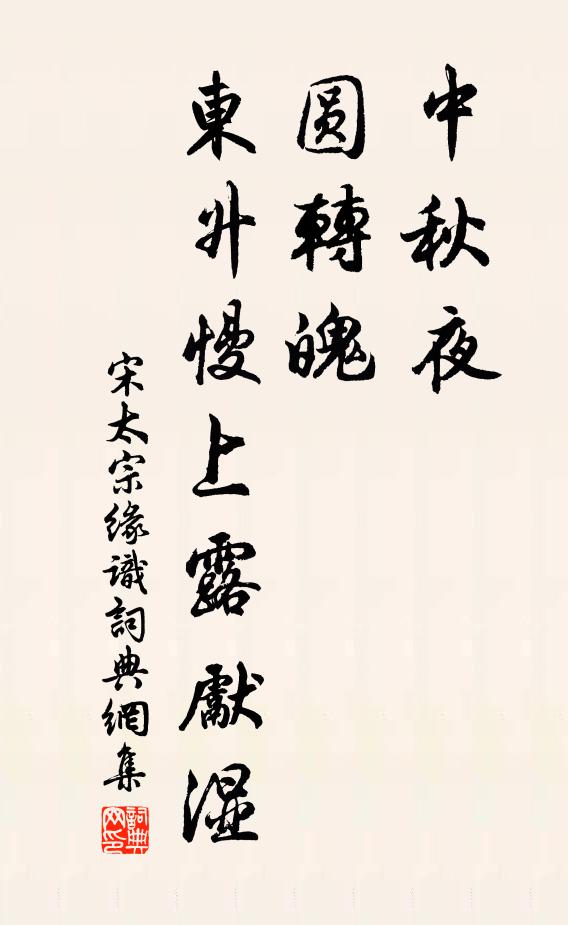 中秋夜
圓轉魄
東升慢上露獻濕
宋太宗緣識詞典網集
詞典网印